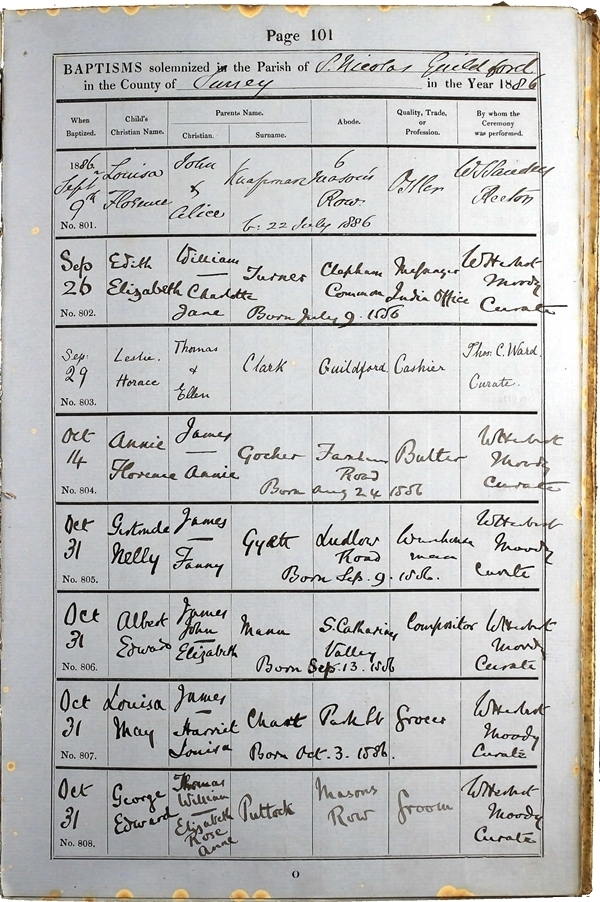 Page 101
BAPTISMS solemnized in the Parish of S. Nicolas Guildford
in the County of Surrey in the Year 1886
When Baptized. Child's Christian Name. Parents Name. Christian. Surname. Abode. Quality, Trade, or Profession. By whom the Ceremony was performed.
1886 Sept 9th No. 801. Louisa Florence John & Alice Knapman 6 Mason's Row Ostler W S Sanders Rector
b. 22 July 1886
Sep 26 No. 802. Edith Elizabeth William — Charlotte Jane Turner Clapham Common Messenger India Office W Herbert Moody Curate
Born July 9. 1886
Sep: 29 No. 803. Leslie. Horace Thomas & Ellen Clark Guildford Cashier Thos: C. Ward. Curate.
Oct 14 No. 804. Annie Florence James — Annie Gocher Road Butler W Herbert Moody Curate
Born Aug 24 1886
Oct 31 No. 805. Gertrude Nelly James — Fanny Gyatt Ludlow Road Warehouse man W Herbert Moody Curate
Born Sep. 9. 1886.
Oct 31 No. 806. Albert Edward James John — Elizabeth Mann S. Catharines Valley Compositor W Herbert Moody Curate
Born Sep. 13. 1886
Oct 31 No. 807. Louisa May James — Harriet Louisa Chart Park St Grocer W Herbert Moody Curate
Born Oct. 3. 1886.
Oct 31 No. 808. George Edward Thomas William — Elizabeth Rose Anne Puttock Masons Row Groom W Herbert Moody Curate
O